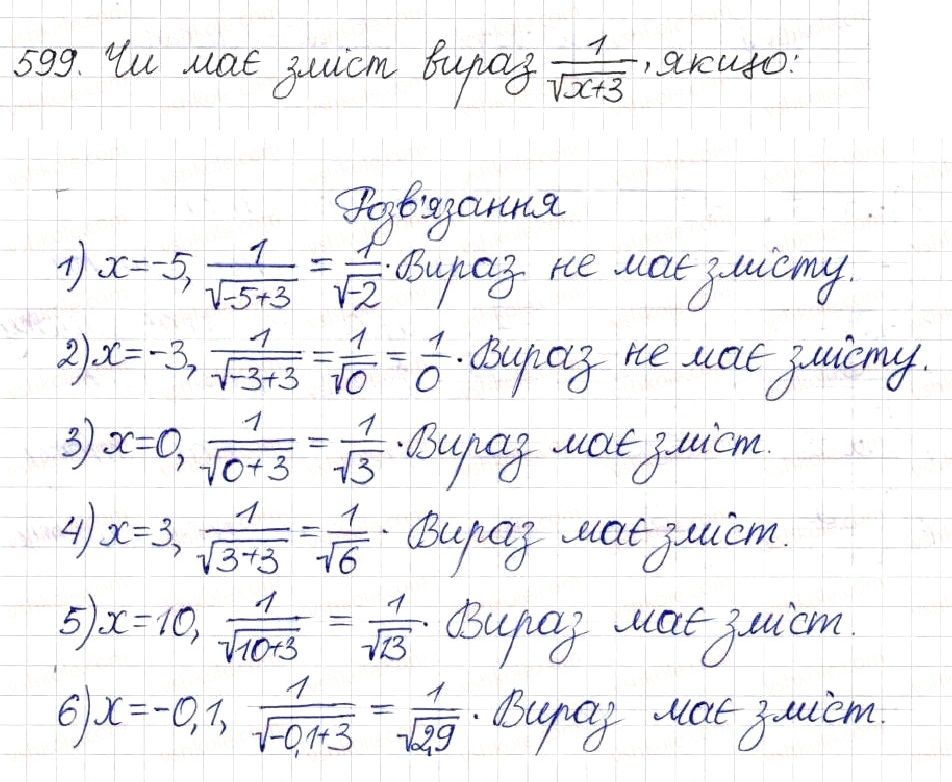 599. Чи має зміст вираз 1/√(x+3), якщо:
Розв'язання
1) x=-5, 1/√(-5+3) = 1/√-2. Вираз не має змісту.
2) x=-3, 1/√(-3+3) = 1/√0 = 1/0. Вираз не має змісту.
3) x=0, 1/√(0+3) = 1/√3. Вираз має зміст.
4) x=3, 1/√(3+3) = 1/√6. Вираз має зміст.
5) x=10, 1/√(10+3) = 1/√13. Вираз має зміст.
6) x=-0,1, 1/√(-0,1+3) = 1/√2,9. Вираз має зміст.